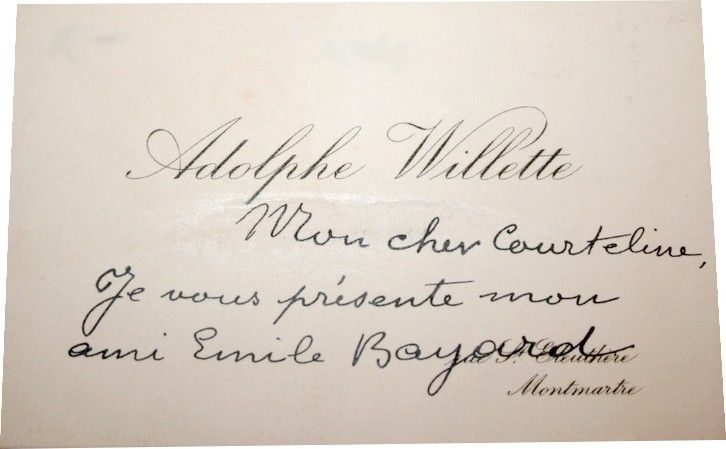 Adolphe Willette
Mon cher Courteline,
Je vous présente mon
ami Emile Bayard
rue St. Eleuthère
Montmartre